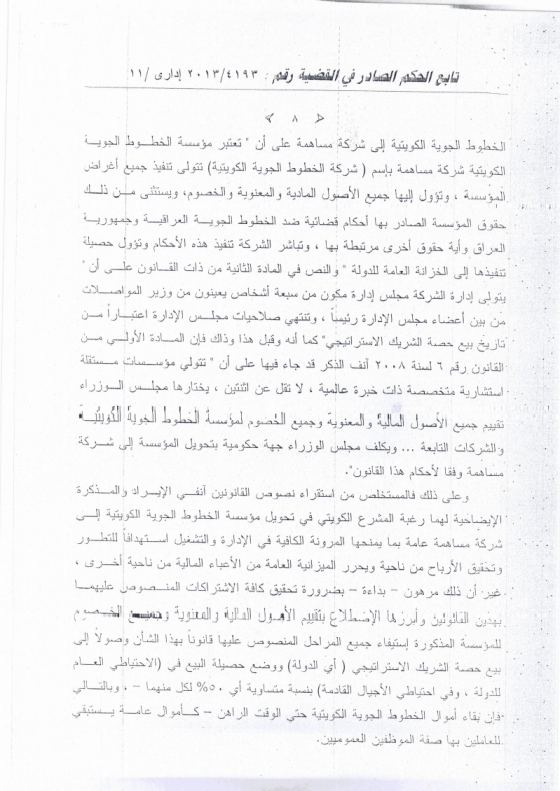 تابع الحكم الصادر في القضية رقم : ٢٠١٣/٤١٩٣ إدارى /١١
﴿ ٨ ﴾
الخطوط الجوية الكويتية إلى شركة مساهمة على أن " تعتبر مؤسسة الخطـوط الجويـة
الكويتية شركة مساهمة بإسم ( شركة الخطوط الجوية الكويتية) تتولى تنفيذ جميع أغراض
المؤسسة ، وتؤول إليها جميع الأصول المادية والمعنوية والخصوم، ويستثنى مـن ذلـك
حقوق المؤسسة الصادر بها أحكام قضائية ضد الخطوط الجويـة العراقيـة وجمهوريـة
العراق وأية حقوق أخرى مرتبطة بها ، وتباشر الشركة تنفيذ هذه الأحكام وتؤول حصيلة
تنفيذها إلى الخزانة العامة للدولة " والنص في المادة الثانية من ذات القـانون علـى أن "
يتولى إدارة الشركة مجلس إدارة مكون من سبعة أشخاص يعينون من وزير المواصـلات
من بين أعضاء مجلس الإدارة رئيسًا ، وتنتهي صلاحيات مجلـس الإدارة اعتبـاراً مـن
تاريخ بيع حصة الشريك الاستراتيجي" كما أنه وقبل هذا وذاك فإن المـادة الأولـي مـن
القانون رقم ٦ لسنة ٢٠٠٨ آنف الذكر قد جاء فيها على أن " تتولي مؤسسـات مستقلة
استشارية متخصصة ذات خبرة عالمية ، لا تقل عن اثنتين ، يختارها مجلـس الـوزراء
تقييم جميع الأصول المالية والمعنوية وجميع الخصوم لمؤسسة الخطوط الجوية الكويتية
والشركات التابعة ... ويكلف مجلس الوزراء جهة حكومية بتحويل المؤسسة إلى شـركة
مساهمة وفقا لأحكام هذا القانون".
وعلى ذلك فالمستخلص من استقراء نصوص القانونين آنفـي الإيـراد والمـذكرة
الإيضاحية لهما رغبة المشرع الكويتي في تحويل مؤسسة الخطوط الجوية الكويتية إلـى
شركة مساهمة عامة بما يمنحها المرونة الكافية في الإدارة والتشغيل استهدافاً للتطور
وتحقيق الأرباح من ناحية ويحرر الميزانية العامة من الأعباء المالية من ناحية أخرى ،
غير أن ذلك مرهون – بداءة – بضرورة تحقيق كافة الاشتراكات المنـصوص عليهمـا
بهذين القانونين وأبرزها الإضطلاع بتقييم الأصول المالية والمعنوية وجميع الخصوم
للمؤسسة المذكورة إستيفاء جميع المراحل المنصوص عليها قانوناً بهذا الشأن وصولاً إلى
بيع حصة الشريك الاستراتيجي ( أي الدولة) ووضع حصيلة البيع في (الاحتياطي العـام
للدولة ، وفي احتياطي الأجيال القادمة) بنسبة متساوية أي ٥٠% لكل منهمـا – . وبالتـالي
فإن بقاء أموال الخطوط الجوية الكويتية حتي الوقت الراهن – كـأموال عامـة يـستبقي
للعاملين بها صفة الموظفين العموميين.